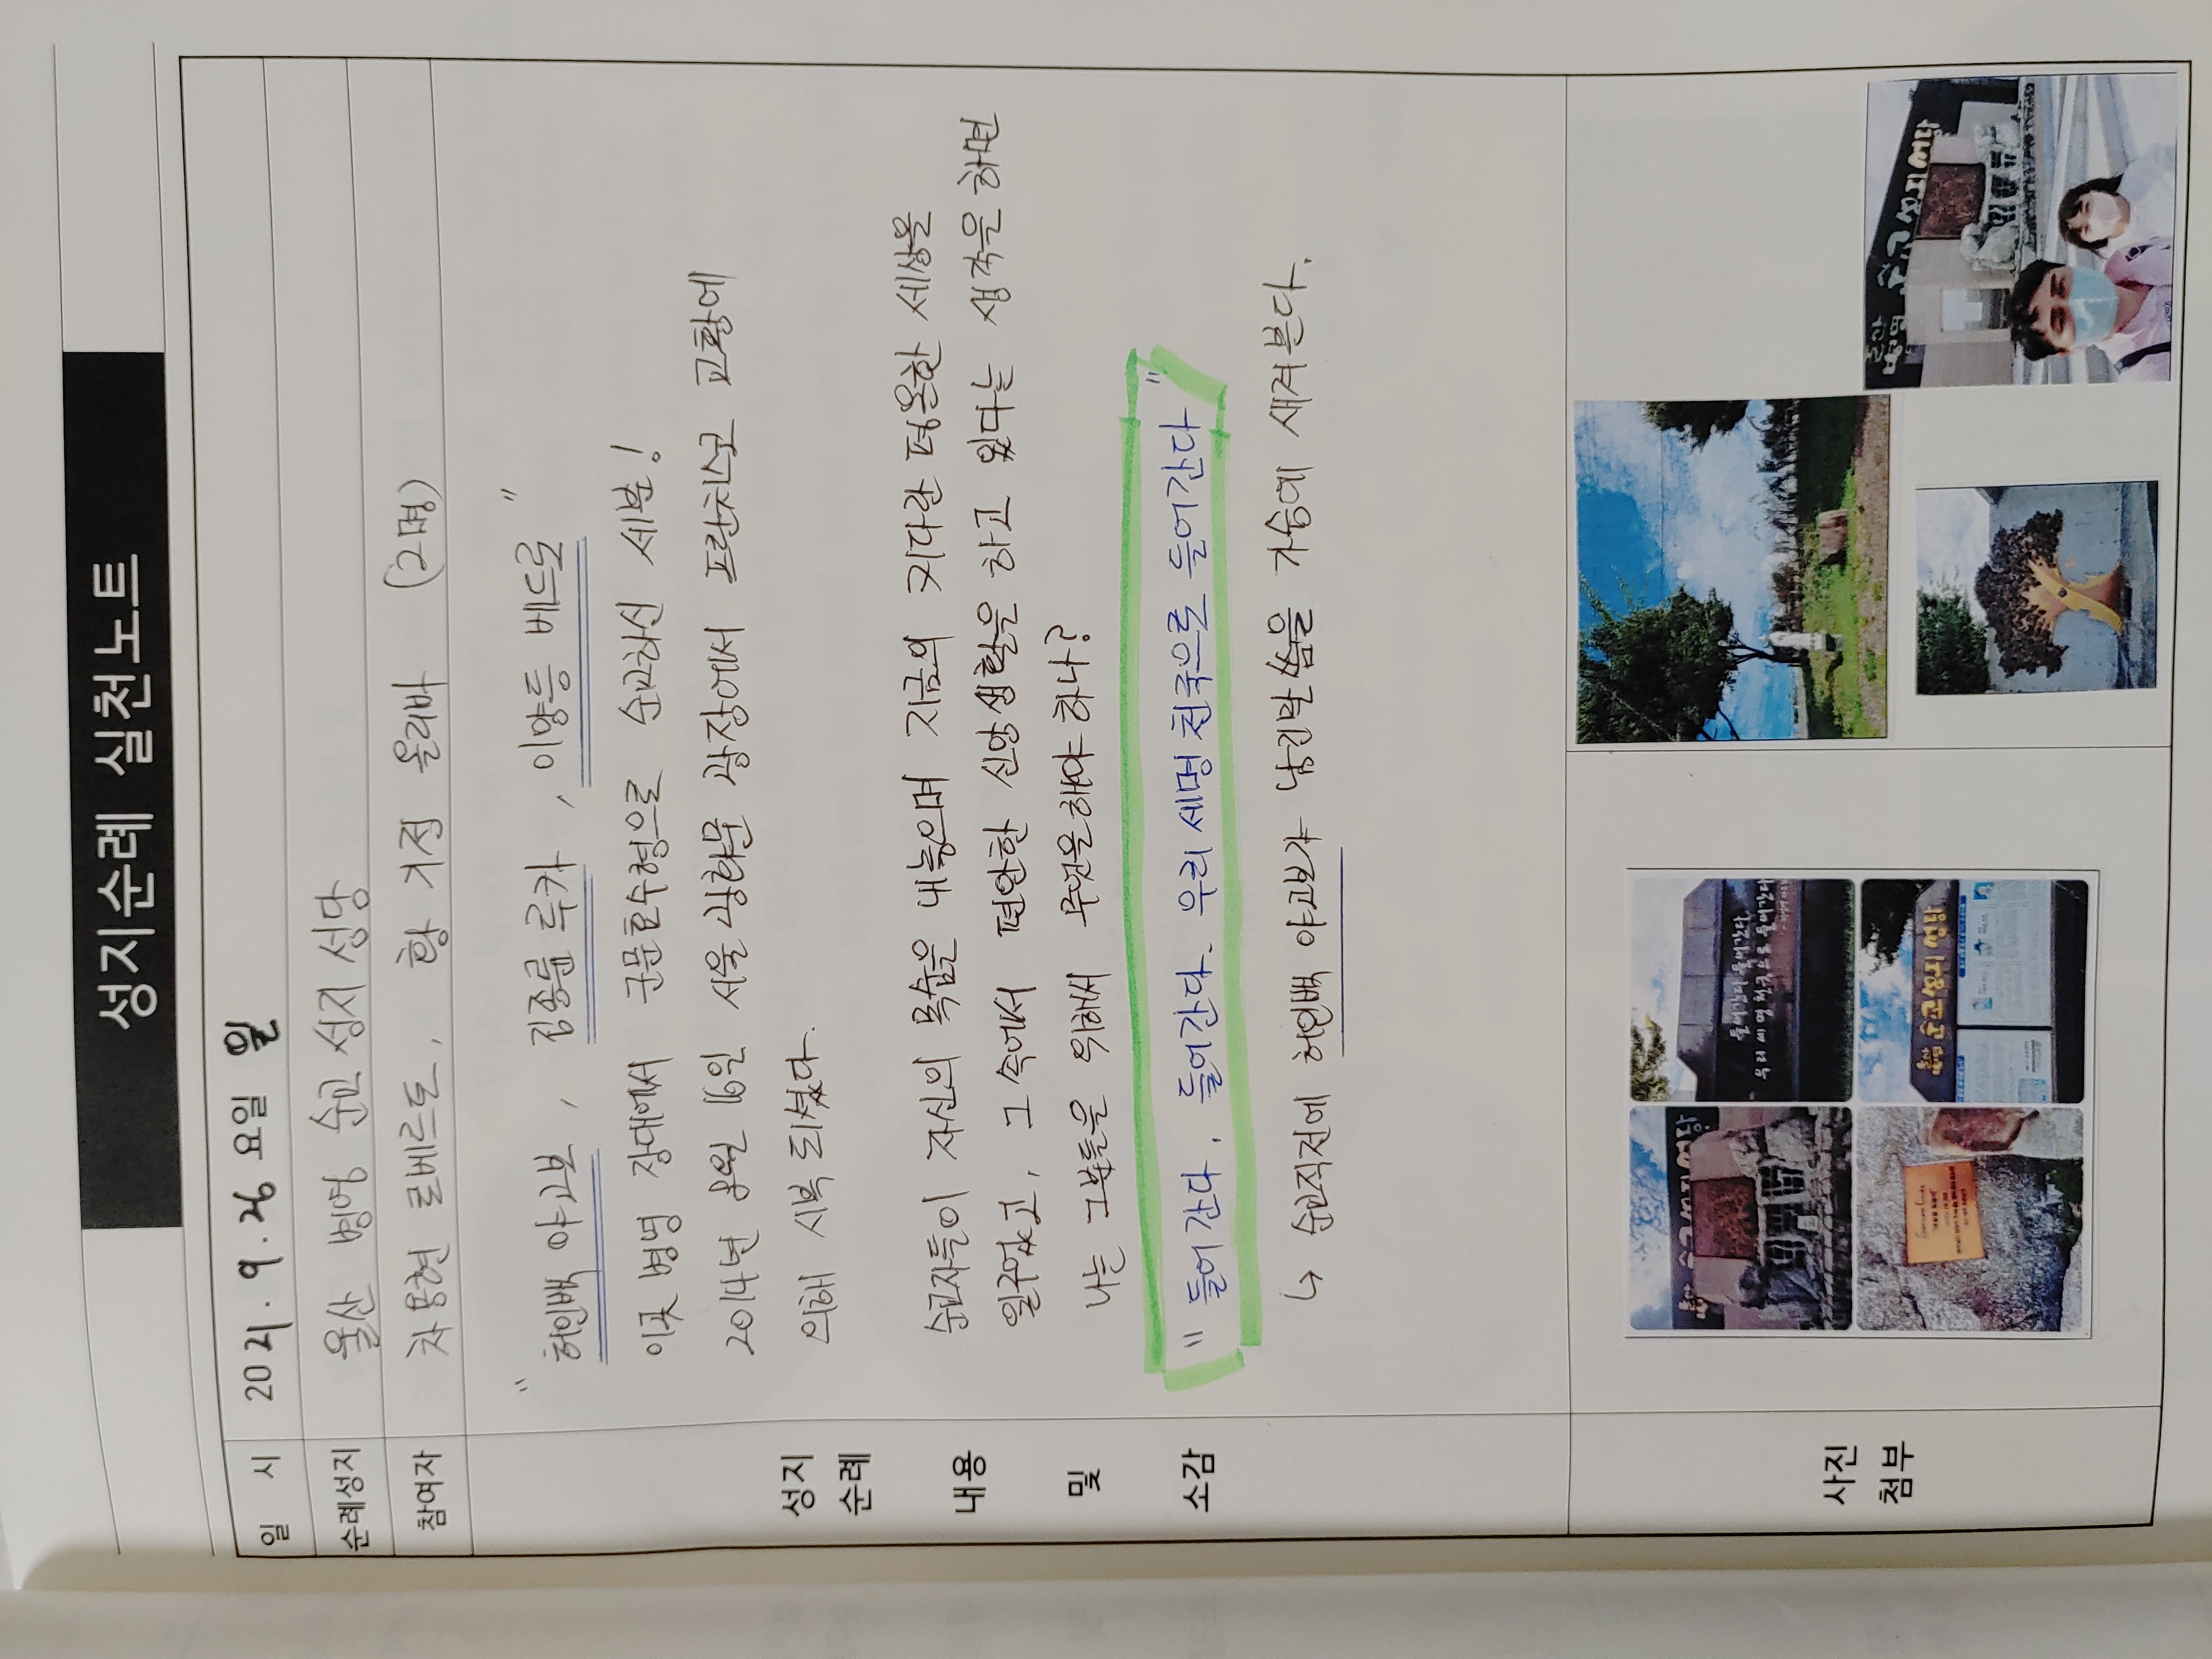 성지순례 실천노트
일 시
2021. 9. 26 요일 일
순례성지
울산 병영 순교 성지 성당
참여자
차용현 로베르토, 황 기정 올리바 (2명)
성지
순례
내용
및
소감
" 허인백 야고보, 김종륜 루카, 이양등 베드로 "
이곳 병영 장대에서 군문효수형으로 순교하신 세분!
2014년 8월 16일 서울 광화문 광장에서 프란치스코 교황에
의해 시복 되셨다.
순교자들이 자신의 목숨을 내놓으며 지금의 커다란 평온한 세상을
일구었고, 그 속에서 편안한 신앙생활을 하고 있다는 생각을 하면
나는 그분들을 위해서 무엇을 해야 하나?
" 들어간다, 들어간다. 우리 세명 천국으로 들어간다 "
↳ 순교직전에 허인백 야고보가 남긴 말씀을 가슴에 새겨본다.
사진
첨부
순교성지성당
들어간다 들어간다
우리 세 명 천국으로 들어간다
울산
병영 순교성지 성당
울산
병영 순교성지성당